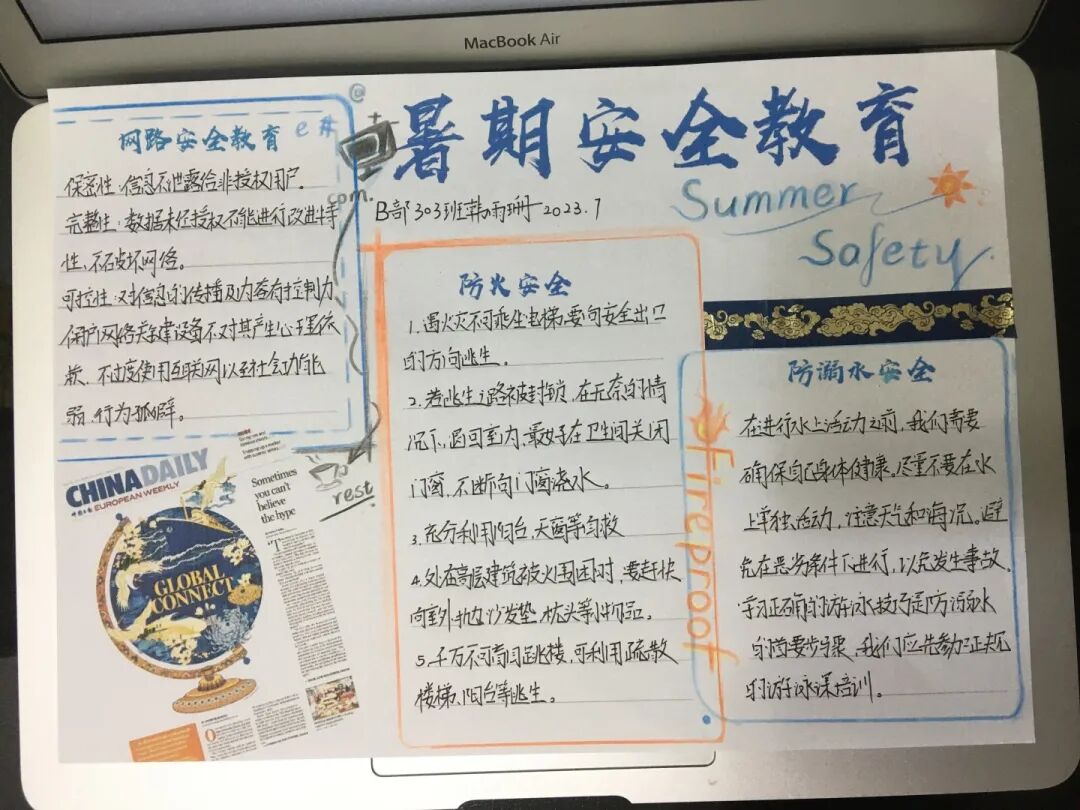 MacBook Air
暑期安全教育
Summer
Safety
B部303班韩雨珊 2023.7
网路安全教育
e
#
@
com.
保密性:信息不泄露给非授权用户。
完整性:数据未经授权不能进行改进特
性,不破坏网络。
可控性:对信息的传播及内容有控制力
使用户网络关键建设备不对其产生心理依
赖,不过度使用互联网以至社会功能
弱,行为孤僻。
rest
CHINADAILY
EUROPEAN WEEKLY
GLOBAL
CONNECT
Sometimes
you can't
believe
the hype
防火安全
1.遇火灾不可乘坐电梯,要向安全出口
的方向逃生。
2.若逃生之路被封锁,在无奈的情
况下,退回室内,最好在卫生间关闭
门窗,不断向门窗浇水。
3.充分利用阳台,天窗等自救
4.处在高层建筑被火围困时,要赶快
向室外抛沙发垫,枕头等小物品。
5.千万不可盲目跳楼,可利用疏散
楼梯、阳台等逃生。
fireproof
防溺水安全
在进行水上活动之前,我们需要
确保自己身体健康。尽量不要在水
上单独活动,注意天气和海况。避
免在恶劣条件下进行,以免发生事故。
学习正确的游泳技巧是防溺水
的首要步骤,我们应先参加正规
的游泳课培训。